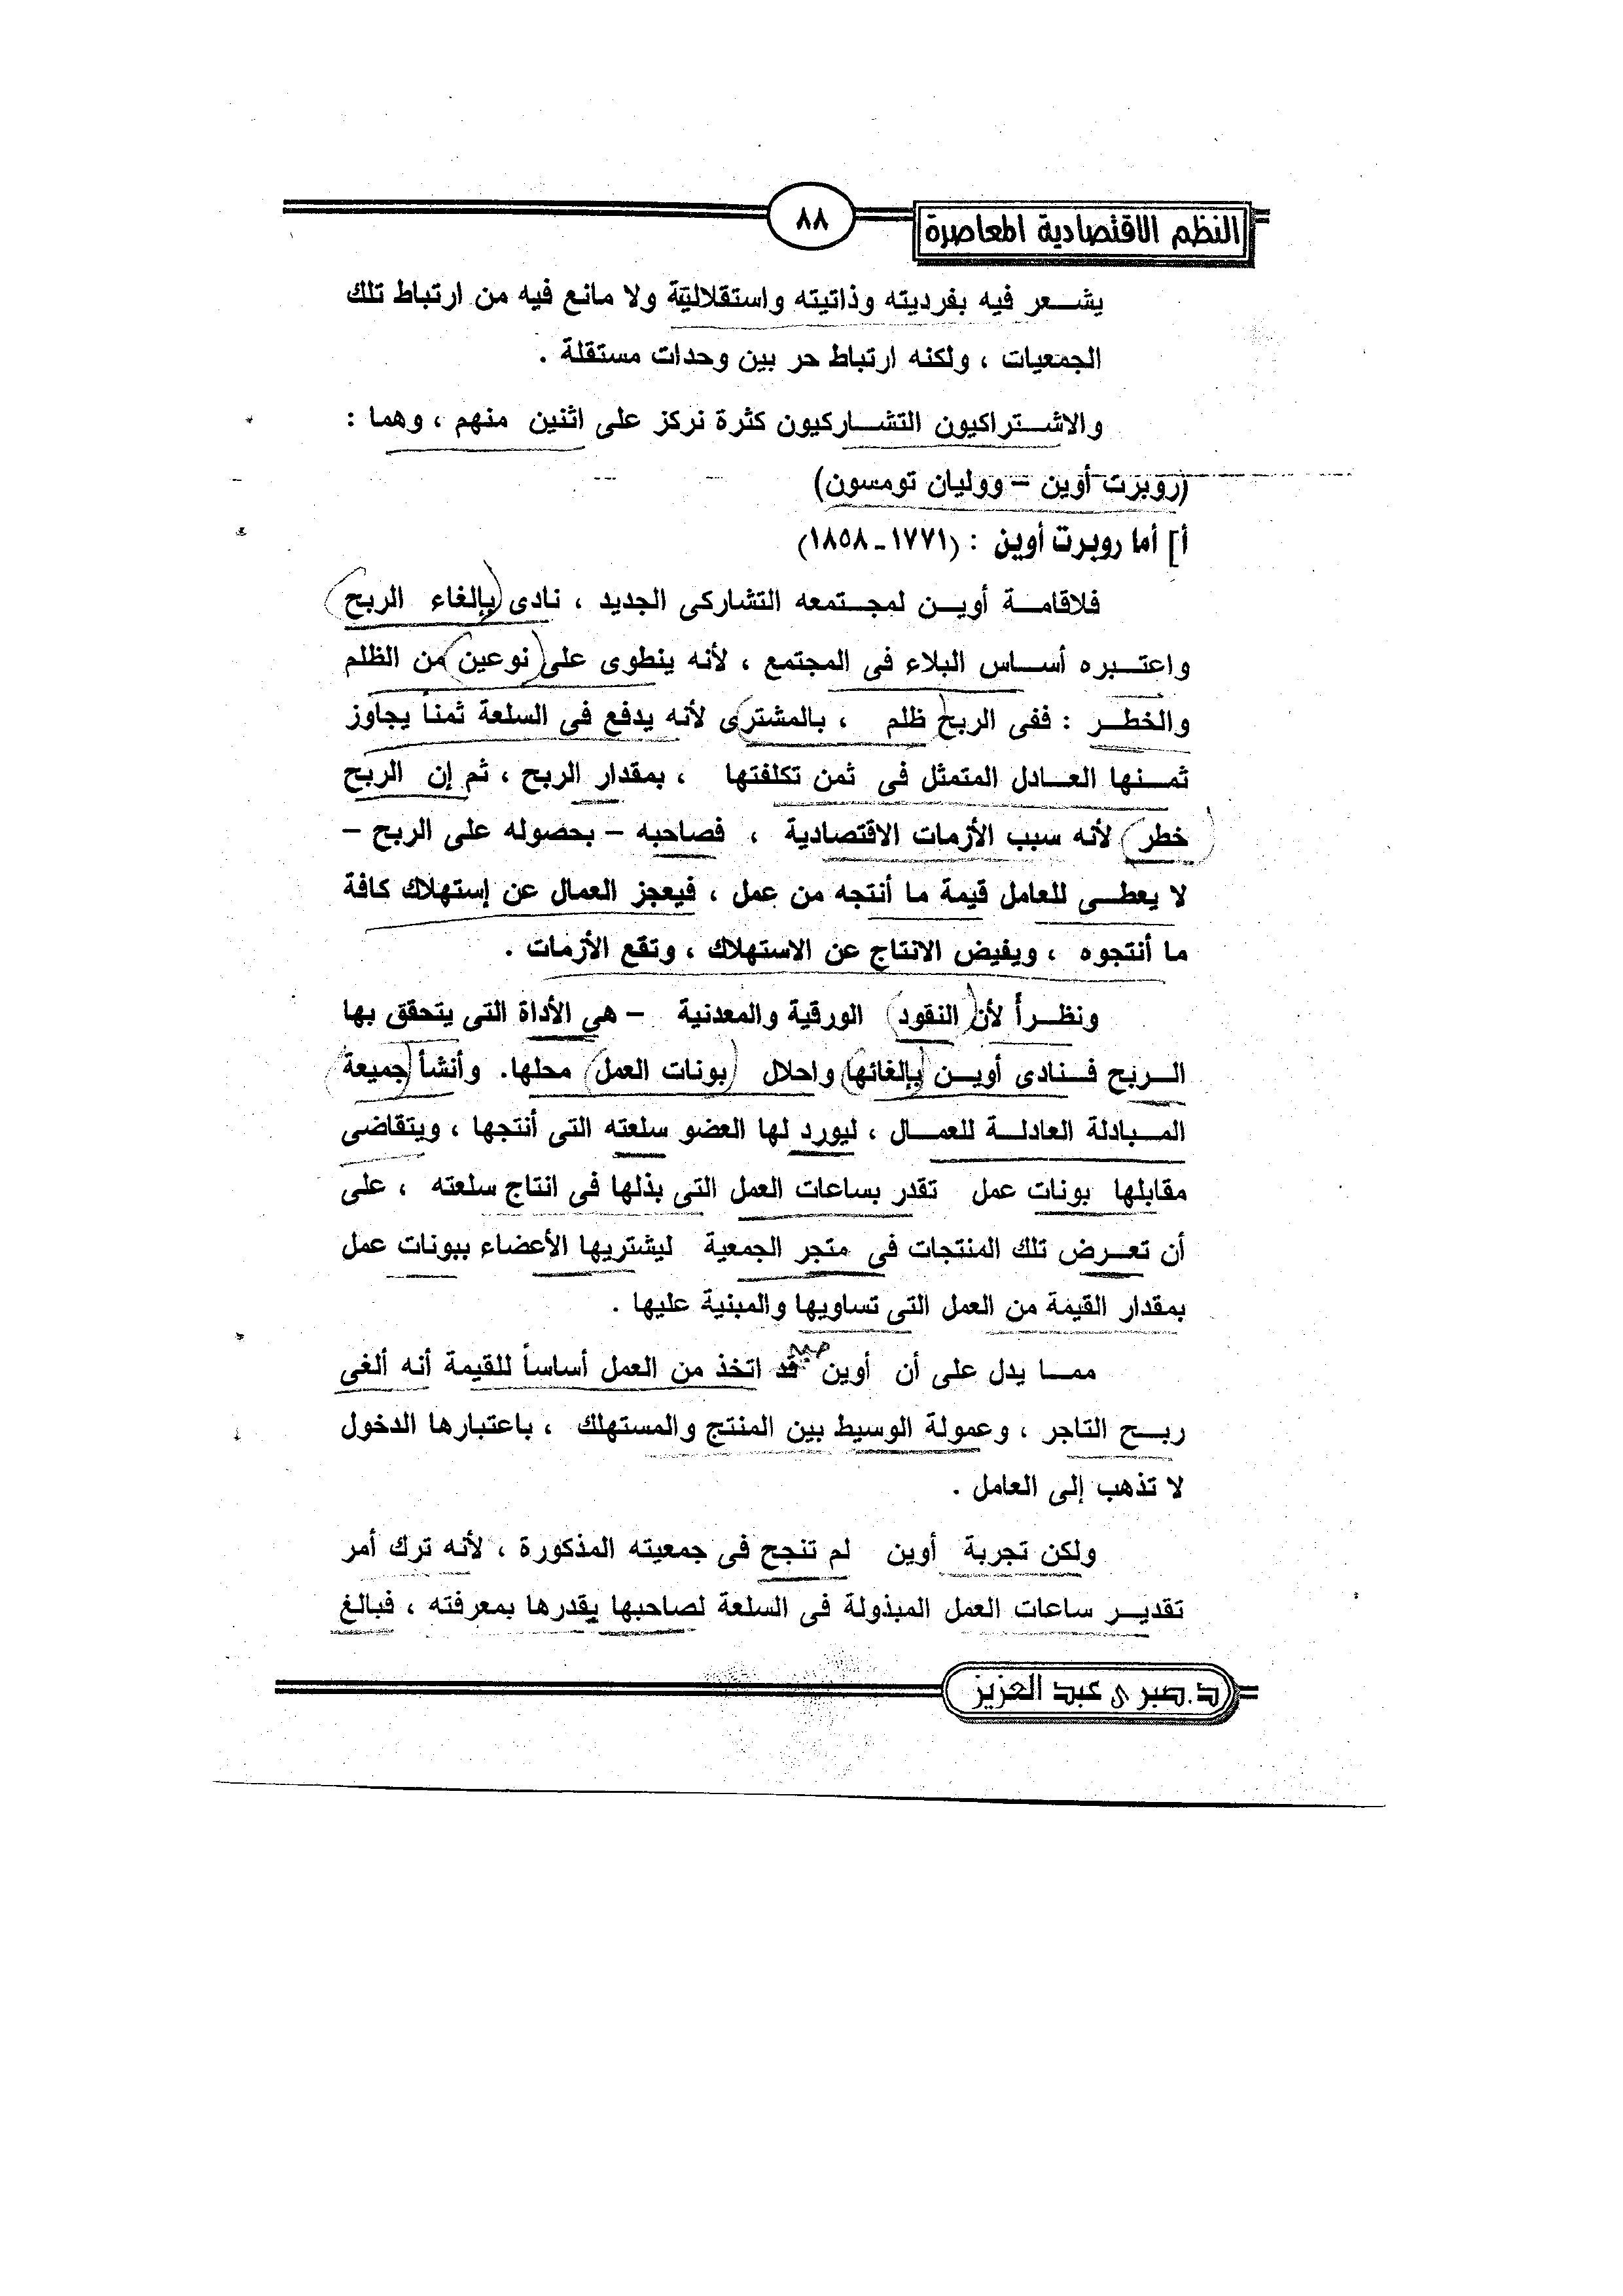 النظم الاقتصادية المعاصرة
٨٨
يشعر فيه بفرديته وذاتيته واستقلاليتة ولا مانع فيه من ارتباط تلك
الجمعيات ، ولكنه ارتباط حر بين وحدات مستقلة .
والاشتراكيون التشاركيون كثرة نركز على اثنين منهم ، وهما :
(روبرت أوين – ووليان تومسون)
أ] أما روبرت أوين : (١٧٧١ـ١٨٥٨)
فلاقامة أوين لمجتمعه التشاركى الجديد ، نادى (بإلغاء الربح)
واعتبره أساس البلاء فى المجتمع ، لأنه ينطوى على (نوعين) من الظلم
والخطر : ففى الربح ظلم ، بالمشترى لأنه يدفع فى السلعة ثمناً يجاوز
ثمنها العادل المتمثل فى ثمن تكلفتها ، بمقدار الربح ، ثم إن الربح
(خطر) لأنه سبب الأزمات الاقتصادية ، فصاحبه – بحصوله على الربح –
لا يعطى للعامل قيمة ما أنتجه من عمل ، فيعجز العمال عن إستهلاك كافة
ما أنتجوه ، ويفيض الانتاج عن الاستهلاك ، وتقع الأزمات .
ونظراً لأن (النقود) الورقية والمعدنية – هي الأداة التى يتحقق بها
الربح فنادى أوين (بإلغائها) واحلال (بونات العمل) محلها. وأنشأ (جميعة)
المبادلة العادلة للعمال ، ليورد لها العضو سلعته التى أنتجها ، ويتقاضى
مقابلها بونات عمل تقدر بساعات العمل التى بذلها فى انتاج سلعته ، على
أن تعرض تلك المنتجات فى متجر الجمعية ليشتريها الأعضاء ببونات عمل
بمقدار القيمة من العمل التى تساويها والمبنية عليها .
مما يدل على أن أوين قد اتخذ من العمل أساساً للقيمة أنه ألغى
ربح التاجر ، وعمولة الوسيط بين المنتج والمستهلك ، باعتبارها الدخول
لا تذهب إلى العامل .
ولكن تجربة أوين لم تنجح فى جمعيته المذكورة ، لأنه ترك أمر
تقدير ساعات العمل المبذولة فى السلعة لصاحبها يقدرها بمعرفته ، فبالغ
د.صبرى عبد العزيز